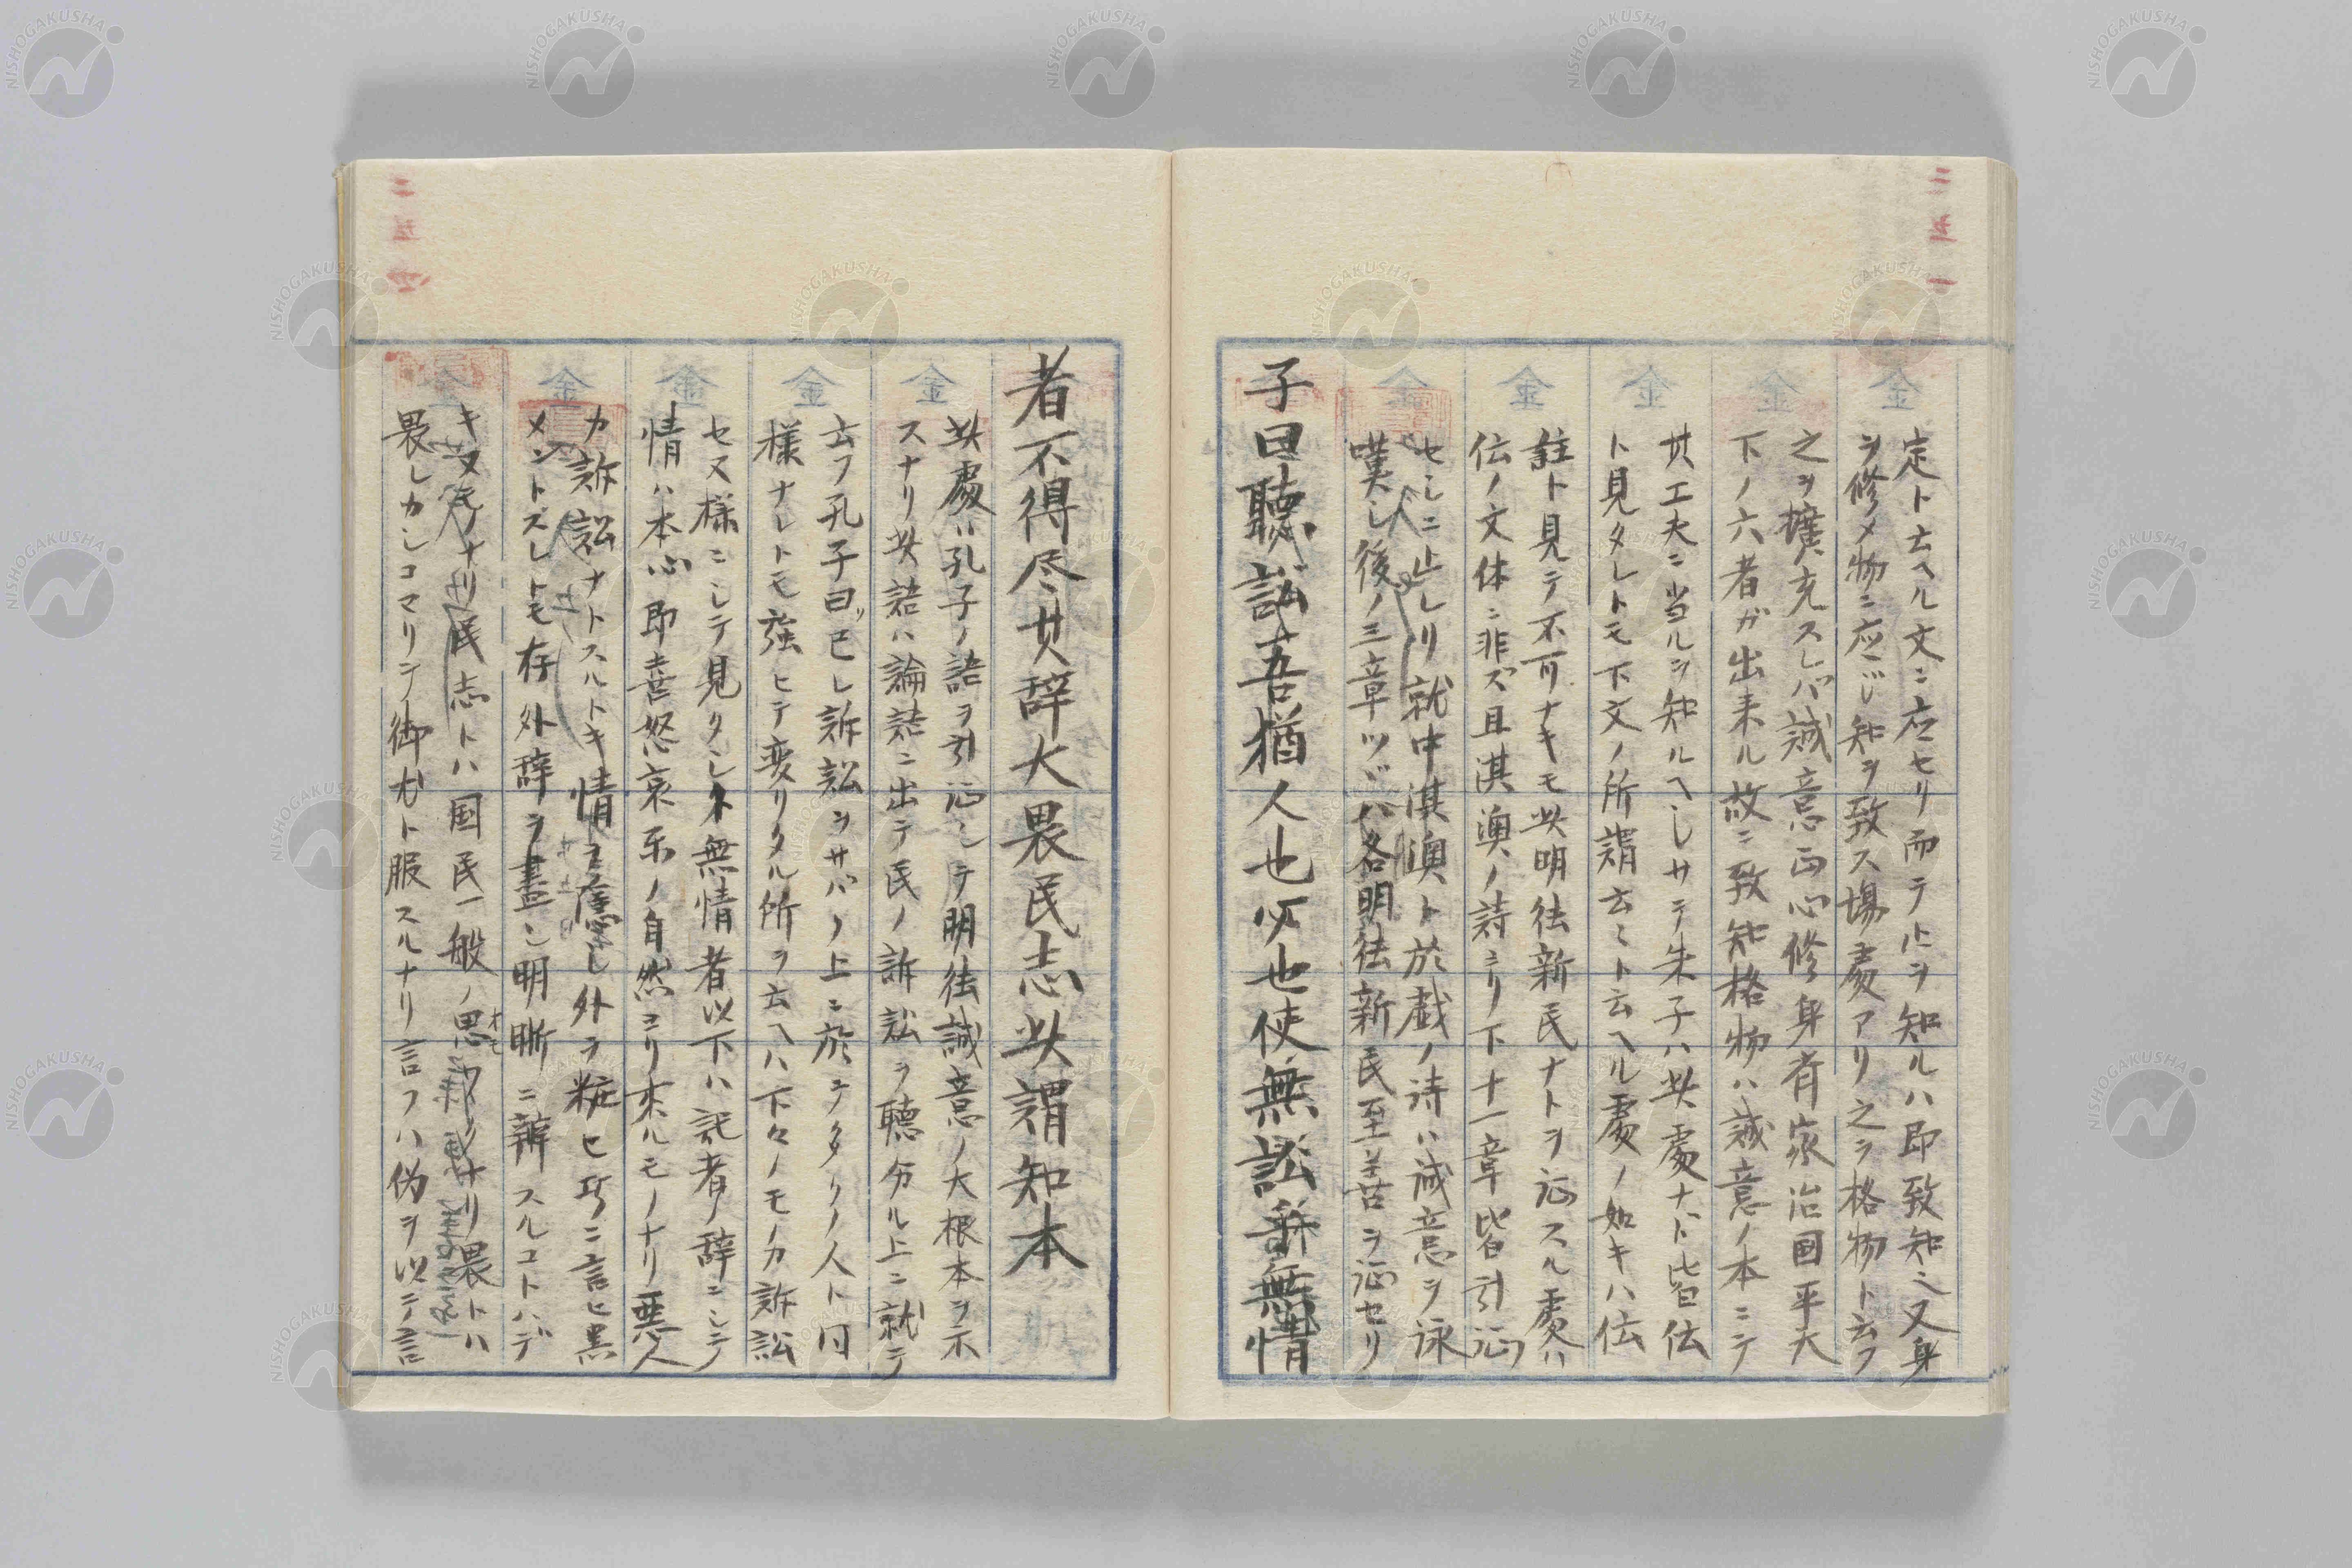 定ト云ヘル文ニ応セリ而テ止ヲ知ルハ即致知ニ又身
ヲ修メ物ニ応ジ知ヲ致ス場處アリ之ヲ格物ト云フ
之ヲ擴充スレバ誠意正心修身斉家治国平天
下ノ六者ガ出来ル故ニ致知格物ハ誠意ノ本ニテ
其工夫ニ当ルヲ知ルヘしサテ朱子ハ此處ナド皆伝
ト見タレトモ下文ノ所謂云々ト云ヘル處ノ如キハ伝
註ト見テ不可ナキモ此明徳新民ナトヲ証スル處ハ
伝ノ文体ニ非ズ且淇澳ノ詩ヨリ下十一章皆引証
セしニ止レリ就中淇澳ト於戯ノ詩ハ誠意ヲ詠
嘆し後ノ三章ツヾハ各明徳新民至善ヲ証セリ
子曰聴訟吾猶人也必也使無訟乎無情
者不得尽其辞大畏民志此謂知本
此處ハ孔子ノ語ヲ引証シテ明徳誠意ノ大根本ヲ示
スナリ此語ハ論語ニ出テ民ノ訴訟ヲ聴分ル上ニ就テ
云フ孔子曰己レ訴訟ヲサバク上ニ於テタリノ人ト同
様ナレトモ強ヒテ変リタル所ヲ云ヘハ下々ノモノカ訴訟
セヌ様ニシテ見タシ無情者以下ハ記者ノ辞ニシテ
情ハ本心即喜怒哀樂ノ自然ヨリ来ルモノナリ悪人
カ訴訟ナトスルトキ情ヲ隱し外ヲ粧ヒ巧ニ言ヒ黒
メントスレトモ存外辞ヲ盡シ明晰ニ辨スルコトハデ
キヌモノナリ民志トハ国民一般ノ思ワクナリ畏トハ
畏レカシコマリテ御尤ト服スルナリ言フハ偽ヲ以テ言
二五一
二五四
金
金
金
金
金
金
金
金
金
金
金
NISHOGAKUSHA